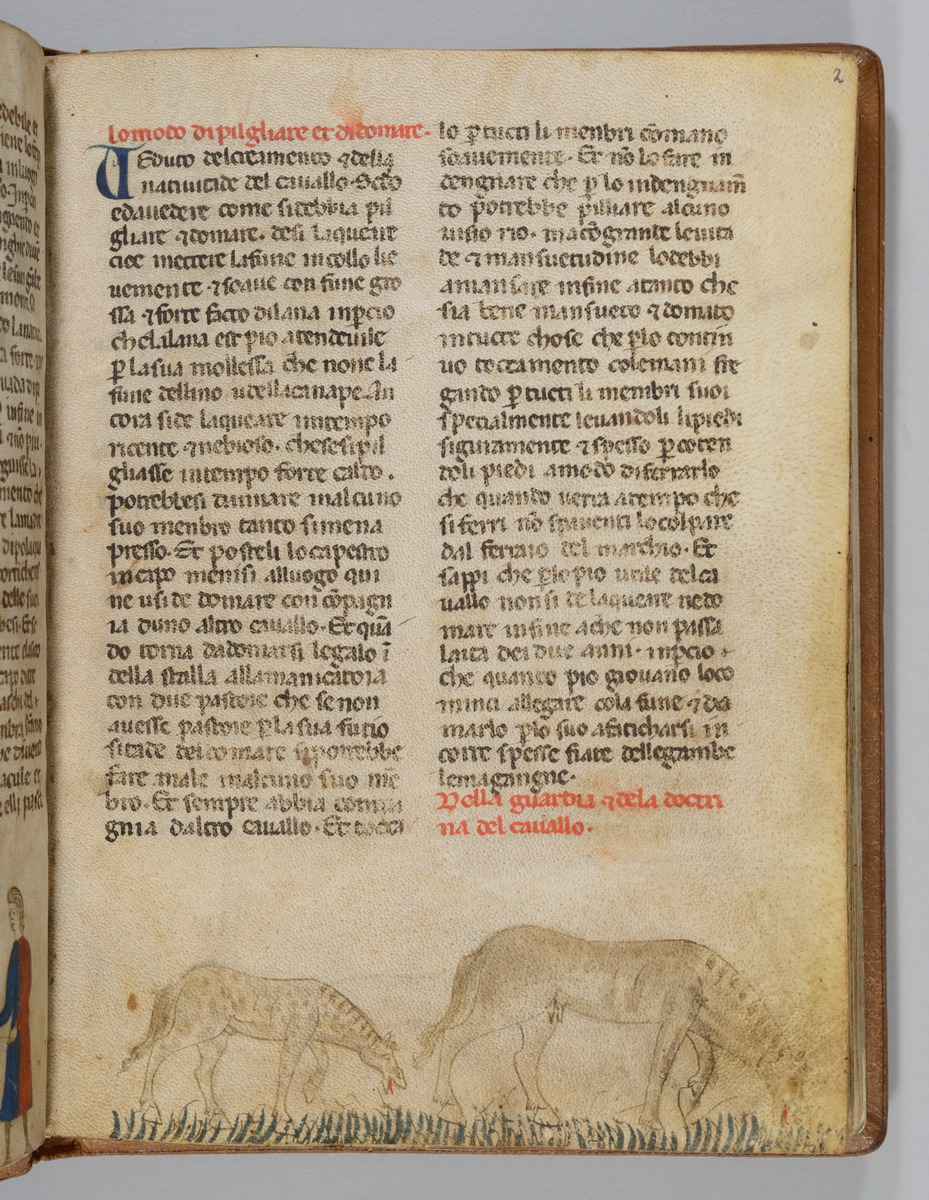 2
lo modo di pilgliare et di domare.
Veduto del creamento ⁊ della
natiuitade del cauallo. Sedo
edauedere come si debbia pil
gliare ⁊ domare. desi laqueare
cioe mettere la fune in collo lie
uemente ⁊ soaue con fune gro
ssa ⁊ forte facto di lana inpcio
che la lana est pio atendeuile
p la sua mollessa che none la
fune dellino u della canape. An
cora side laqueare in tempo
ricente ⁊ nebioso. che se si pil
gliasse in tempo forte caldo.
potrebbesi dannare in alcuno
suo menbro tanto si mena
presso. Et posteli lo capestro
in capo menisi alluogo qui
ne usi de domare con cōpagn
ia duno altro cauallo. Et quā
do torna da domarsi legalo ī
della stalla alla manicatoia
con due pastoie che se non
auesse pastoie p la sua furio
sitade del domare si potrebbe
fare male in alcuno suo mē
bro. Et sempre abbia compa
gnia daltro cauallo. Et tocchi
lo p tucti li menbri cō mano
soauemente. Et nō lo fare in
dengnare che p lo indengnam̄
to potrebbe pilliare alcuno
uisio rio. ma cō grande leuita
de ⁊ mansuetudine lo debbi
amansare infine atanto che
sia bene mansueto ⁊ domato
in tucte chose che plo contin
uo toccamento cole mani fre
gando p tucti li membri suoi
specialmente leuandoli li piedi
siguramente ⁊ spesso pcoten
doli piedi a modo di ferrarlo
che quando uerra a tempo che
si ferri nō spauenti lo colpare
dal ferraio del marchio. Et
sappi che plo pio utile del ca
uallo non si de laqueare ne do
mare infine ache non passa
laita dei due anni. inpcio
che quanto pio giouano loco
minci allegare cola fune ⁊ do
marlo pio suo afaticharsi in
corre spesse fiate delle gambe
le magangne.
Della guardia ⁊ de la doctri
na del cauallo.